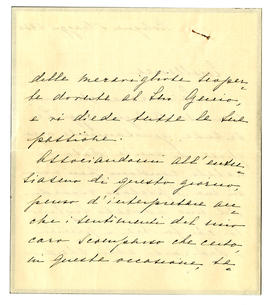 delle meravigliose scoper=
te dovute al Suo Genio,
e vi diede tutte le Sue
passione.
Associandomi all'entu=
siasmo di questo giorno,
penso d'interpretare an=
che i sentimenti del mio
caro Scomparso che certo,
in queste occasione, se=